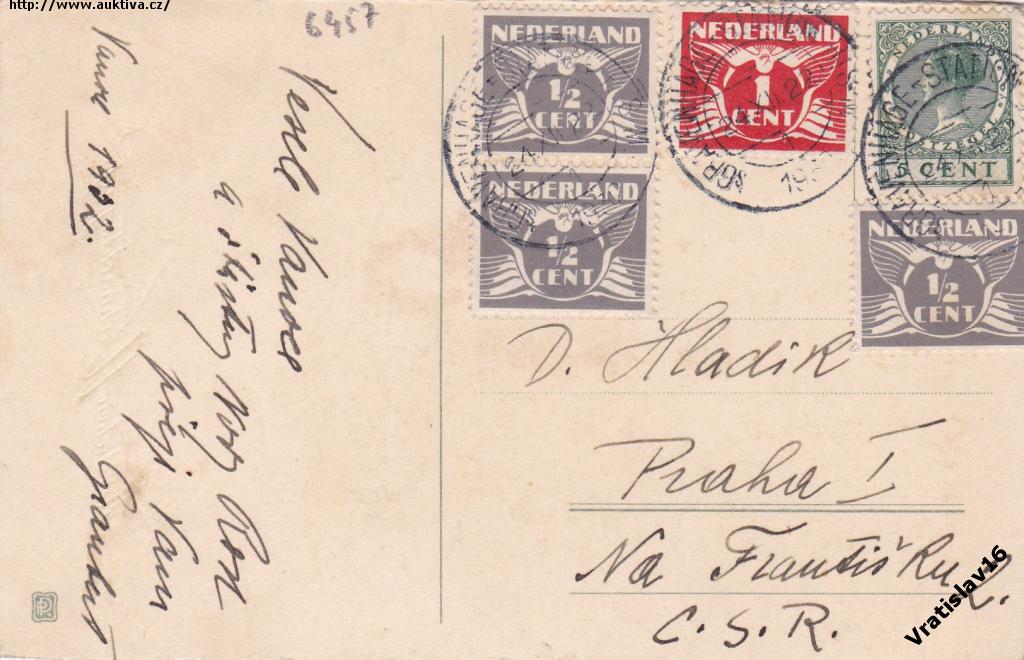 http://www.auktiva.cz/
6457
NEDERLAND
1/2
CENT
NEDERLAND
1
CENT
NEDERLAND
CENT
NEDERLAND
1/2
CENT
NEDERLAND
1/2
CENT
'SGRAVENHAGE-STATION
Vánoce 1932.
Veselé Vánoce
a šťastný Nový Rok
přejí Vám
D. Hladík
Praha I
Na Františku 2.
C. S. R.
Vratislav16